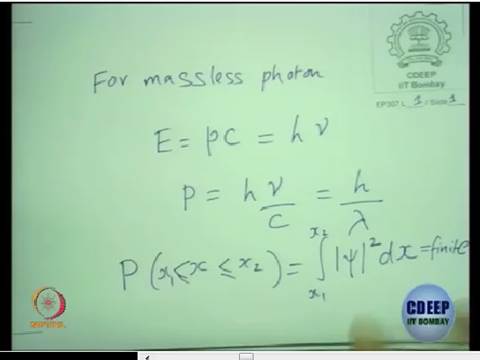 CDEEP
IIT Bombay
EP307 L 1 / Slide 1
For massless photon
E = pc = hν
P = h ν/c = h/λ
P (x₁ ≤ x ≤ x₂) = ∫ₓ₁ˣ² |ψ|² dx = finite
NPTEL
CDEEP
IIT BOMBAY